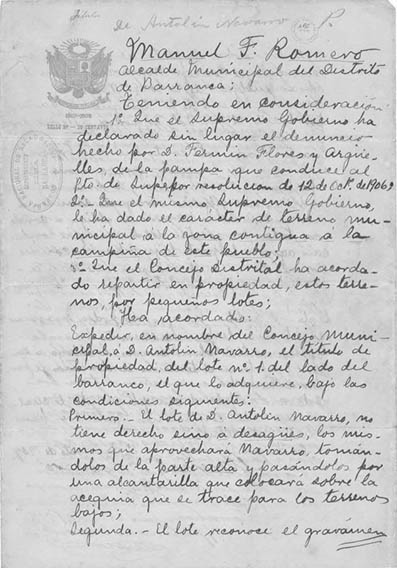 De Antolín Navarro
Manuel F. Romero
Alcalde Municipal del Distrito
de Barranca:
Teniendo en consideración:
1º Que el Supremo Gobierno ha
declarado sin lugar el denuncio
hecho por D. Fermin Flores y Argüe-
lles, de la pampa que conduce al
Pto. de Supe por resolución de 12 de Oct. de 1906;
2º- Que el mismo Supremo Gobierno,
le ha dado el carácter de terreno mu-
nicipal á la zona contigua á la
campiña de este pueblo;
3º Que el Concejo Distrital ha acorda-
do repartir en propiedad, estos terre-
nos, por pequeños lotes;
Ha acordado:
Expedir, en nombre del Concejo Muni-
cipal, á D. Antolin Navarro, el título de
propiedad, del lote nº 1. del lado del
barranco, el que lo adquiere, bajo las
condiciones siguientes:
Primero.- El lote de D. Antolin Navarro, no
tiene derecho sino á desagües, los mis-
mos que aprovechará Navarro, toman-
dolos de la parte alta y pasándolos por
una alcantarilla que colocará sobre la
acequia que se trace para los terrenos
bajos;
Segunda.- El lote reconoce el gravámen